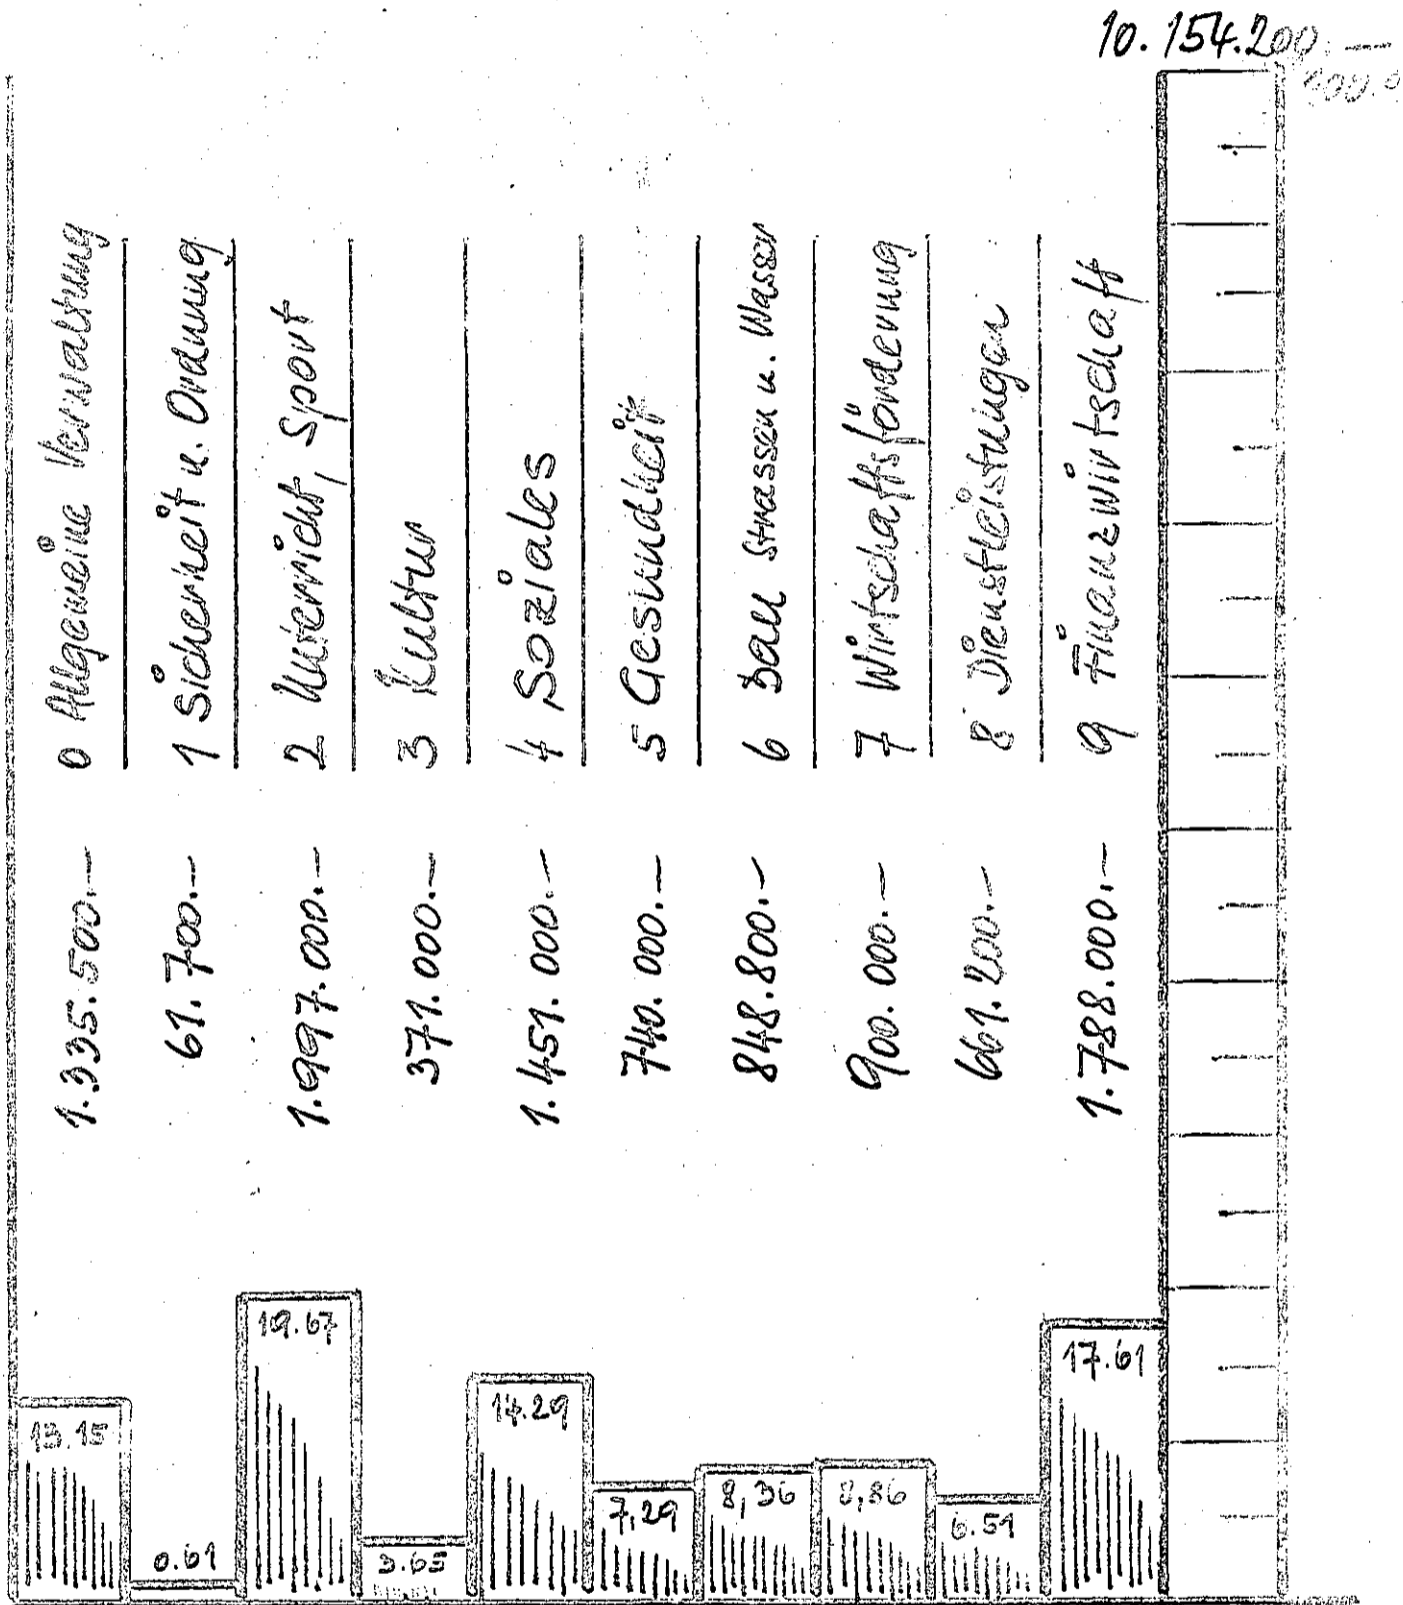 10.154.200.—
0 Allgemeine Verwaltung
1 Sicherheit u. Ordnung
2 Unterricht, Sport
3 Kultur
4 Soziales
5 Gesundheit
6 Bau Strassen u. Wasser
7 Wirtschaftsförderung
8 Dienstleistungen
9 Finanzwirtschaft
1.335.500.—
61.700.—
1.997.000.—
371.000.—
1.451.000.—
740.000.—
848.800.—
900.000.—
661.200.—
1.788.000.—
13.15
0.61
19.67
3.65
14.29
7,29
8,36
8,86
6.51
17.61